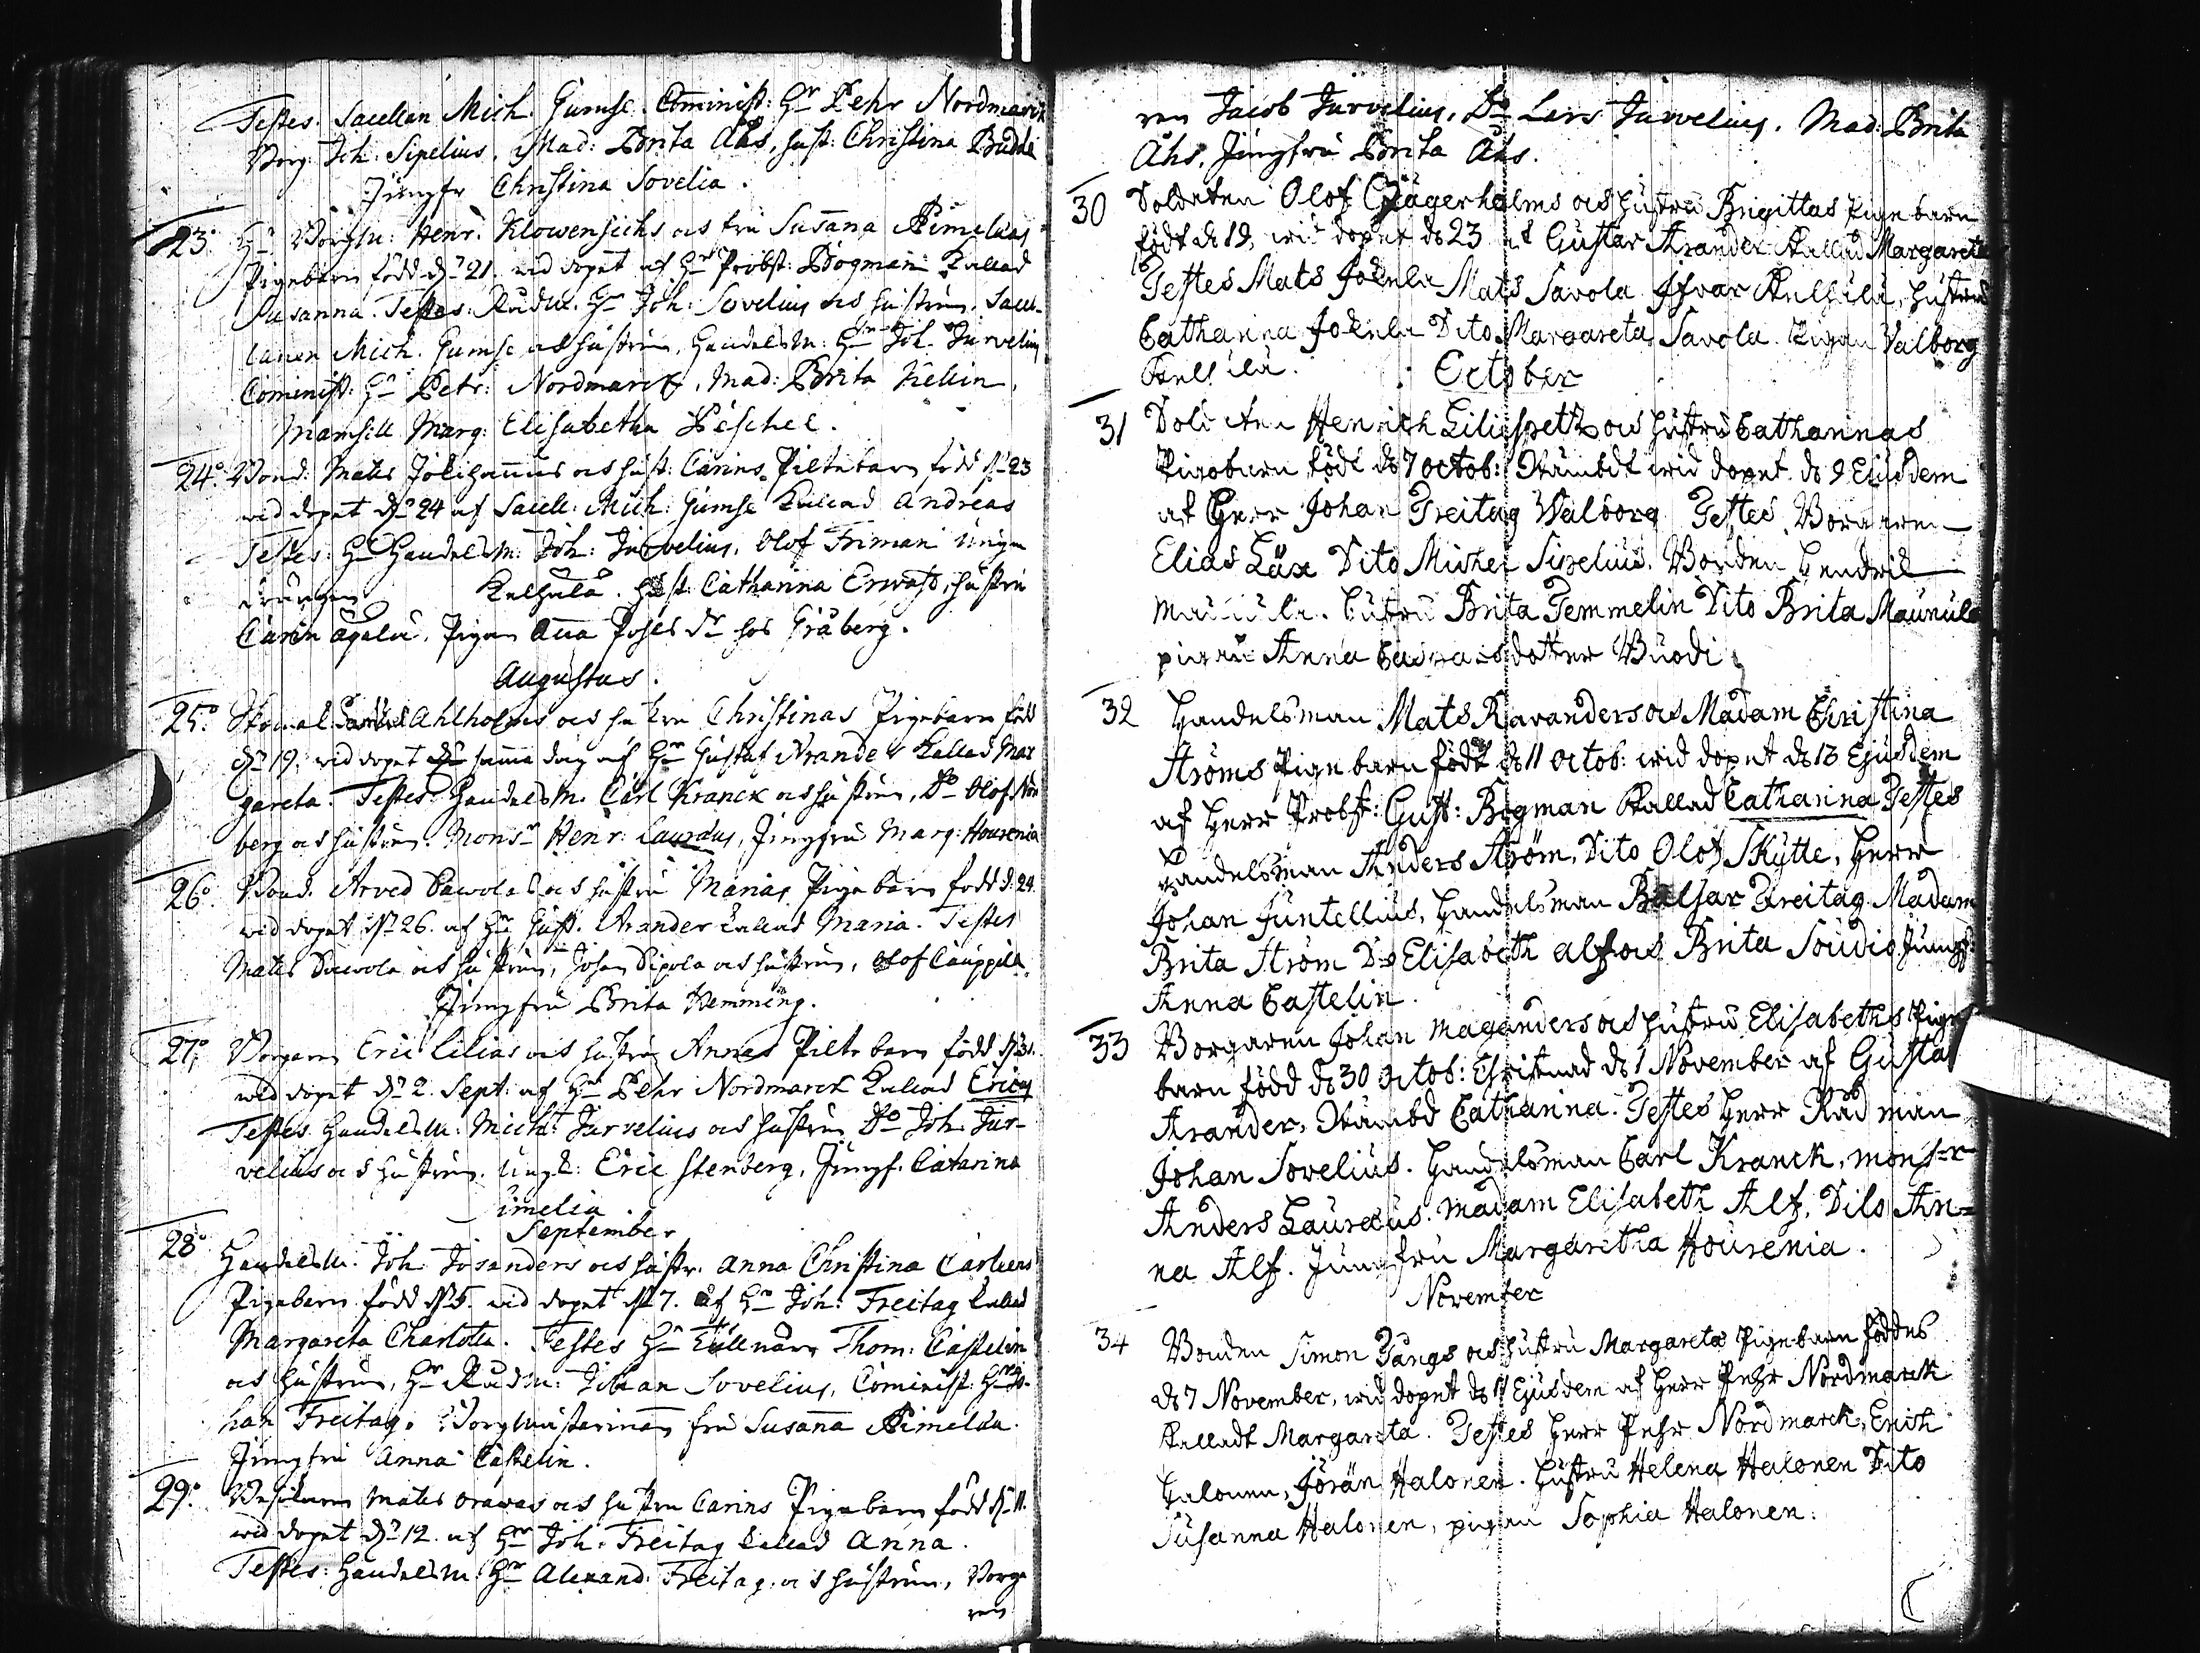 Testes. Sacellan Mich. Gumse. Cominist: Hr Pehr Nordmarck
Borg: Joh: Sipelius, Mad: Brita Åhs, hust: Christina Buddi
Jungfr Christina Sovelia.
23. Hr Borgm: Henr. Klowensichs och fru Susanna Aimelæas
Pigebarn född dn 21. wid dopet af Hr Probst: Bogman Kallad
Susanna. Testes: Rådm. Hr Joh: Sovelius och hustrun. Sacel-
lanen Mich. Gumse och hustrun, Handelsm: Hr Joh. Jurvelius
Cominist: Hr Petr: Nordmarck, Mad: Brita Kellin,
Mamsell Marg: Elisabetha Péschel.
24. Bond: Mats Jokihannus och hust: Carins Piltebarn född dn 23
wid dopet dn 24 af Sacell: Mich: Gumse Kallad Andreas
Testes: Hr Handelsm: Joh: Jurvelius. Olof Friman unga
Kalhula. hust: Catharina Erwast, hustru
Carin Ågelin. Pigan Anna Pohls dr hos Gråberg.
Augustus.
25. Ahlholms och hustru Christinas Pigebarn född
dn 19. wid dopet samma dag af Hr Gustaf Arander Kallad Mar
gareta. Testes: Handelsm. Carl Kranck och hustrun, Do Olof Nor
berg och hustrun. Monsr Henr: Lauræus, Jungfru Marg: Hourenia
26. Bond. Arved Sawolas och hustru Marias Pigebarn född d. 24.
wid dopet dn 26. af Hr Gust. Arander kallad Maria. Testes
Mats Sawola och hustrun, Johan Sipola och hustrun, Olof Cauppila
Jungfru Brita Hemming.
27. Borgaren Eric Lilias och hustru Annas Piltebarn född d. 31.
wid dopet dn 2. Sept: af Hr Pehr Nordmarck Kallad Ericus
Testes. Handelsm: Michl: Jurvelius och hustrun Do Joh. Jur-
velius och hustrun. Ungk: Eric Stenberg, Jungf. Catarina
imelia
September
28. Handelsm. Joh. Josanders och hustr. Anna Christina Carlens
Pigebarn född d. 5. wid dopet dn 7. af Hr Joh: Freitag Kallad
Margareta Charlotta. Testes Hr Tullnären Thom: Castelin
och hustrun, Hr Rådm: Johan Sovelius, Cominist: Hr Jo-
han Freitag. Borgmästarinnan fru Susanna Aimelæa.
Jungfru Anna Castelin.
29. Mats Orawas och hustru Carins Pigebarn född dn 11.
wid dopet dn 12. af Hr Joh: Freitag kallad Anna.
Testes: Handelsm: Hr Alexand: Freitag och hustrun, Borga
ren
ren Jacob Jurvelius. Do Lars Jurvelius. Mad: Brita
Åhs, Jungfru Brita Åhs.
30 Soldaten Olof Jägerholms och hustru Brigittas Pigebarn
födt d 19, wid dopet d 23 af Gustav Arander Kallad Margareta
Testes Mats Jokela Mats Savola Ifvar Kalhula, hustru
Catharina Jokela Dito Margareta Savola. Pigan Valborg
Kalhula.
October
31 Soldaten Henrich Liliespetz och hustru Catharinas
Pigobarn födt d 7 octob: Nämbdt wid dopet d 9 Ejusdem
af Herr Johan Freitag Walborg Testes Borgaren
Elias Läx Dito Michel Sipelius. Bonden Hendrik
Maunula. hustru Brita Temmelin Dito Brita Maunula
pigan Anna dotter Buodi
32 Handelsman Mats Ravanders och Madam Christina
Ströms Pigebarn födt d 11 octob: wid dopet d 13 Ejusdem
af Herr Probst: Gust: Bogman Kallad Catharina Testes
Handelsman Anders Ström, Dito Olof Skytte, Herr
Johan Juntellius, Handelsman Balsar Freitag Madam
Brita Ström Do Elisabeth Alf och Brita Soudio Jungf:
Anna Castelin.
33 Borgaren Johan Maganders och hustru Elisabeths Pige
barn född d 30 Octob: Christnad d 1 November af Gustaf
Arander, Nämbd Catharina. Testes Herr Rådman
Johan Sovelius. Handelsman Carl Kranck, Monsr
Anders Lauræus. Madam Elisabeth Alf, Dito An=
na Alf. Jungfru Margaretha Hourenia.
November
34 Bonden Simon Tangs och hustru Margaretæ Pigebarn föddes
d 7 November, wid dopet d Ejusdem af Herr Pehr Nordmarck
Kalladt Margareta. Testes Herr Pehr Nordmarck, Erich
Halonen, Jörän Halonen. Hustru Helena Halonen Dito
Susanna Halonen, pigan Sophia Halonen.